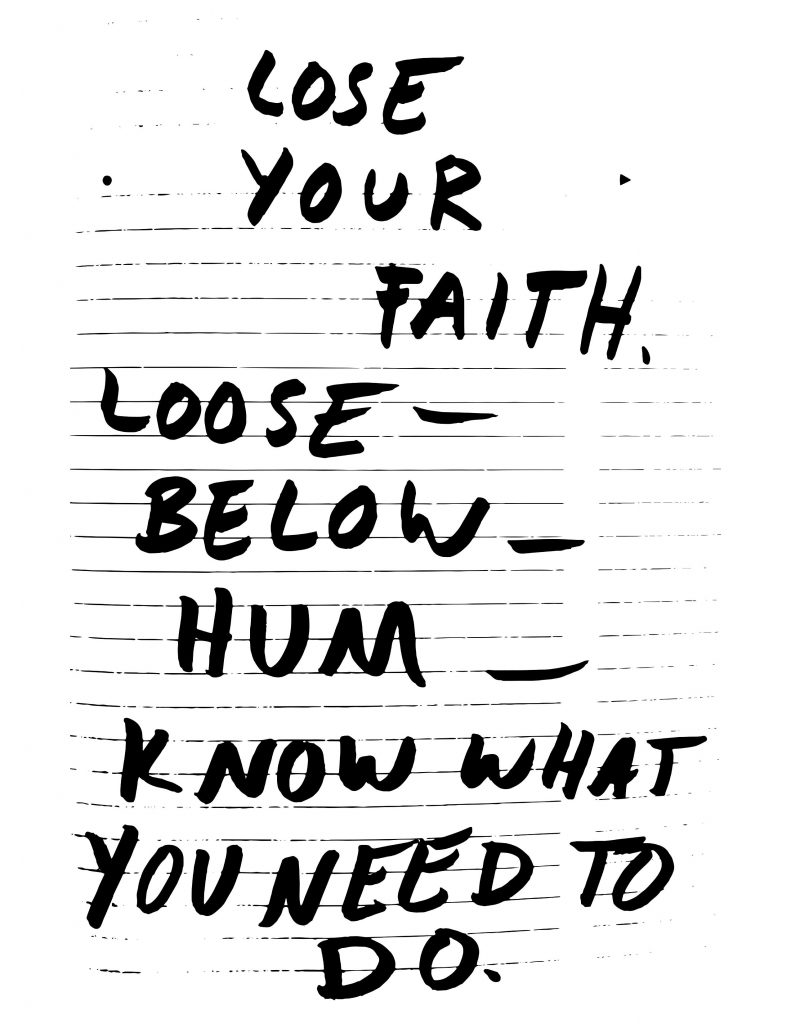 LOSE
YOUR
FAITH.
LOOSE—
BELOW—
HUM —
KNOW WHAT
YOU NEED TO
DO.